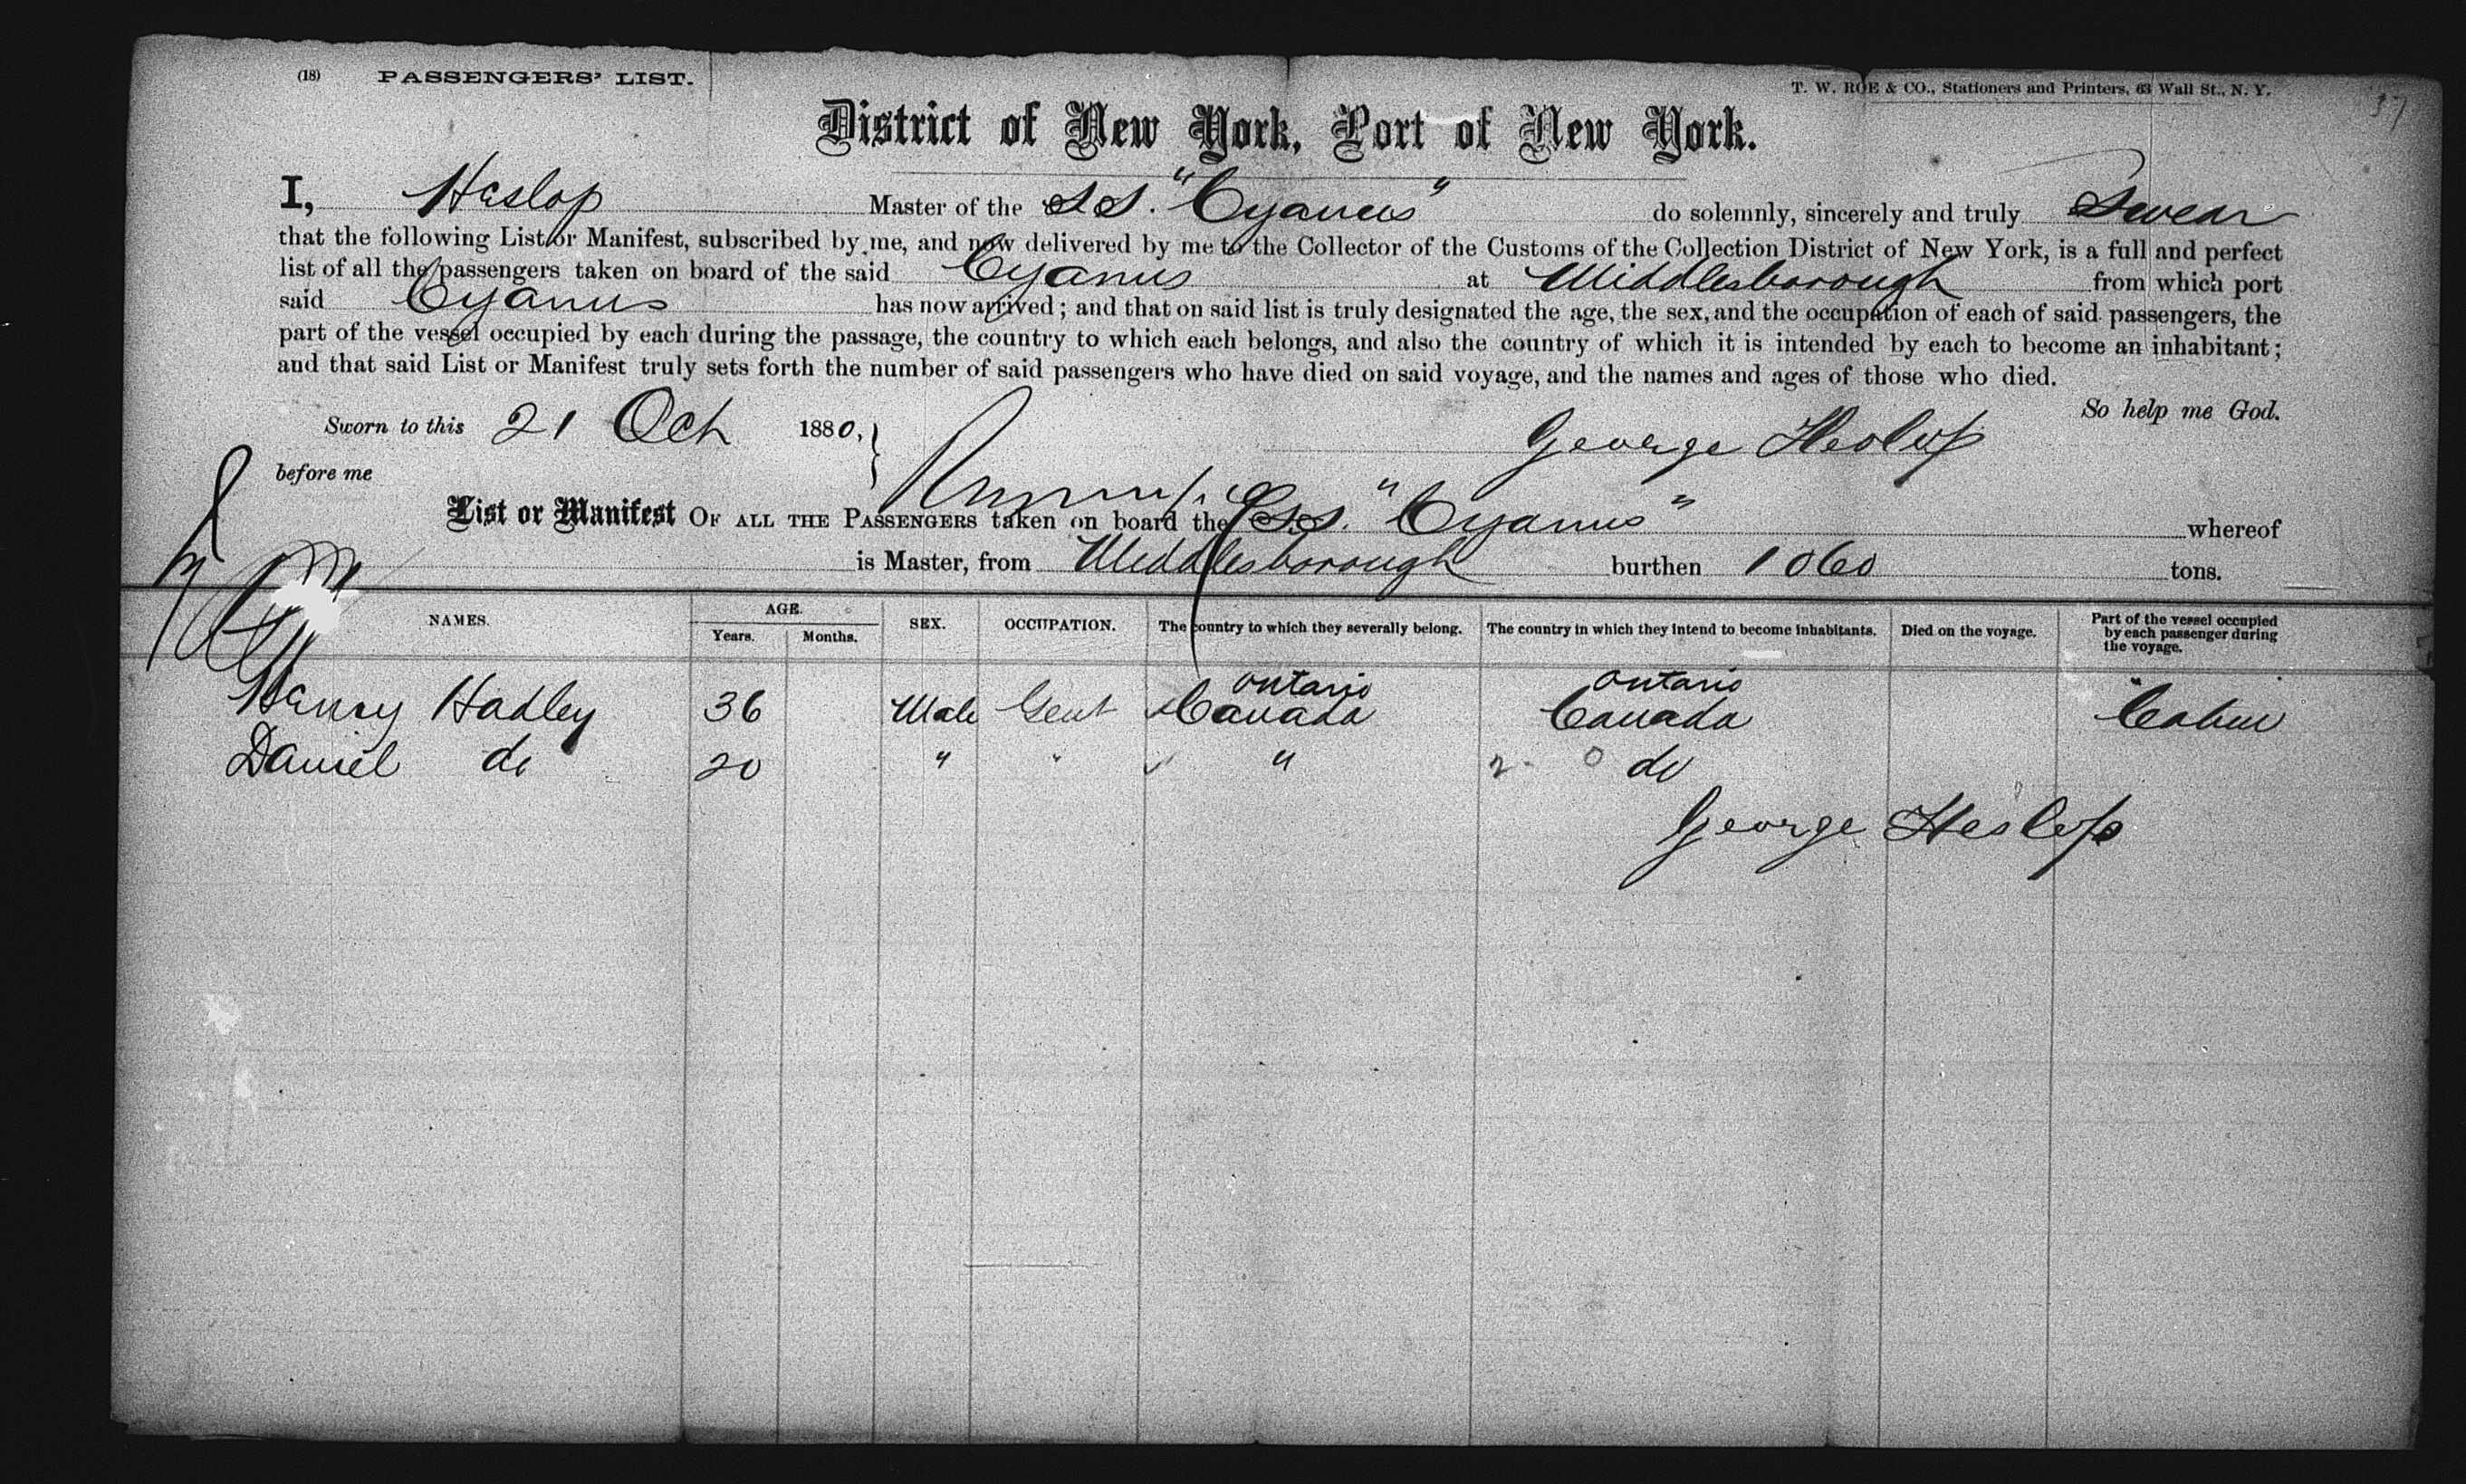 (18) PASSENGERS' LIST.
T. W. ROE & CO., Stationers and Printers, 63 Wall St., N. Y.
37
District of New York, Port of New York.
I, Heslop Master of the SS. "Cyanus" do solemnly, sincerely and truly Swear
that the following List or Manifest, subscribed by me, and now delivered by me to the Collector of the Customs of the Collection District of New York, is a full and perfect
list of all the passengers taken on board of the said Cyanus at Middlesborough from which port
said Cyanus has now arrived; and that on said list is truly designated the age, the sex, and the occupation of each of said passengers, the
part of the vessel occupied by each during the passage, the country to which each belongs, and also the country of which it is intended by each to become an inhabitant;
and that said List or Manifest truly sets forth the number of said passengers who have died on said voyage, and the names and ages of those who died.
So help me God.
Sworn to this 21 Oct 1880,
George Heslop
before me
List or Manifest OF ALL THE PASSENGERS taken on board the SS. "Cyanus" whereof
is Master, from Middlesborough burthen 1060 tons.
NAMES. AGE. Years. Months. SEX. OCCUPATION. The country to which they severally belong. The country in which they intend to become inhabitants. Died on the voyage. Part of the vessel occupied by each passenger during the voyage.
Ontario Ontario
Henry Hadley 36 Male Gent Canada Canada Cabin
Daniel do 20 " " " do
George Heslop